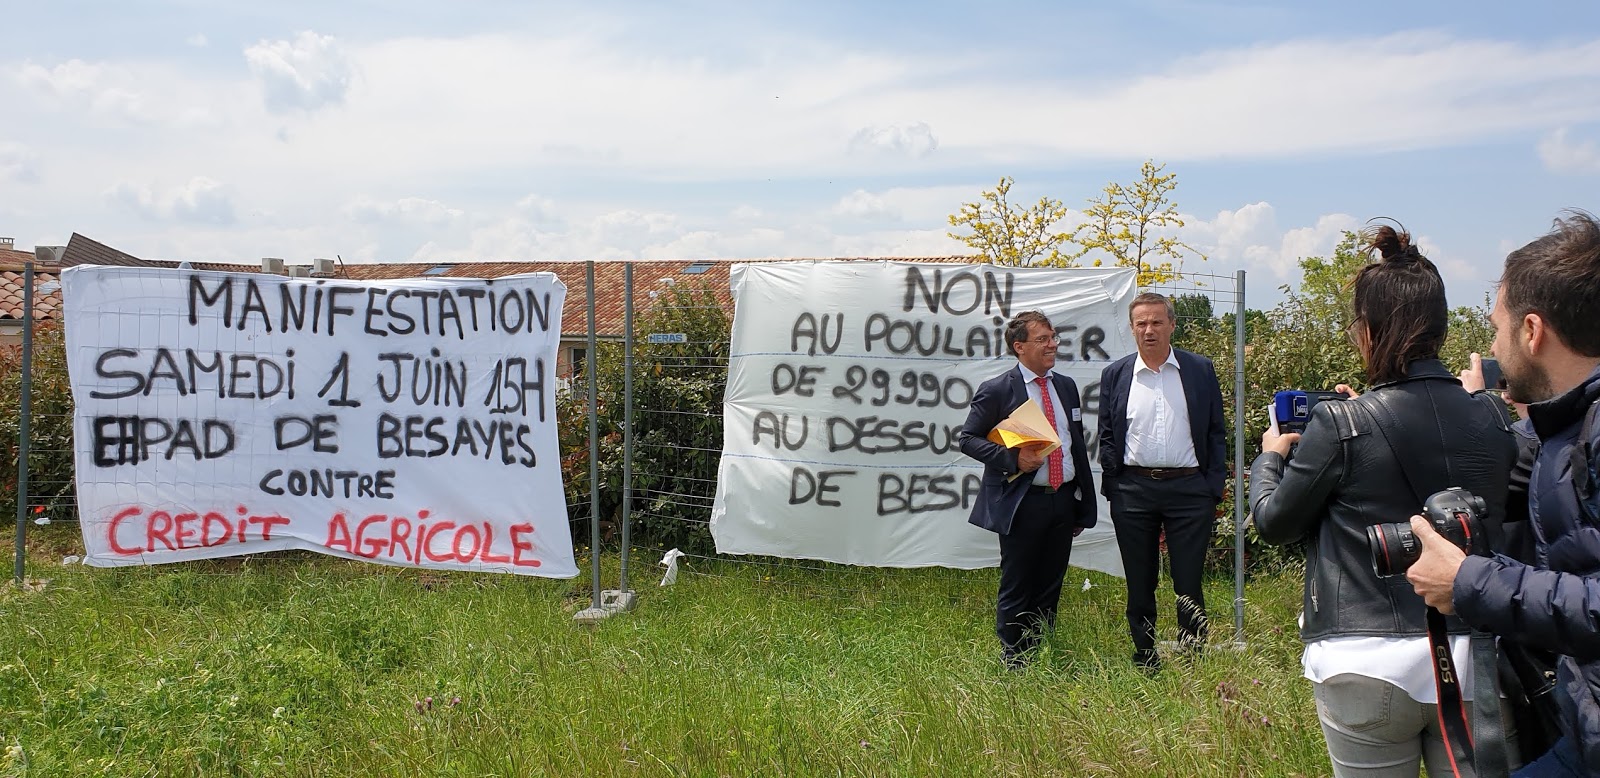 MANIFESTATION
SAMEDI 1 JUIN 15H
EHPAD DE BESAYES
CONTRE
CREDIT AGRICOLE
HERAS
NON
AU POULAILLER
DE 29990
AU DESSUS
DE
EOS